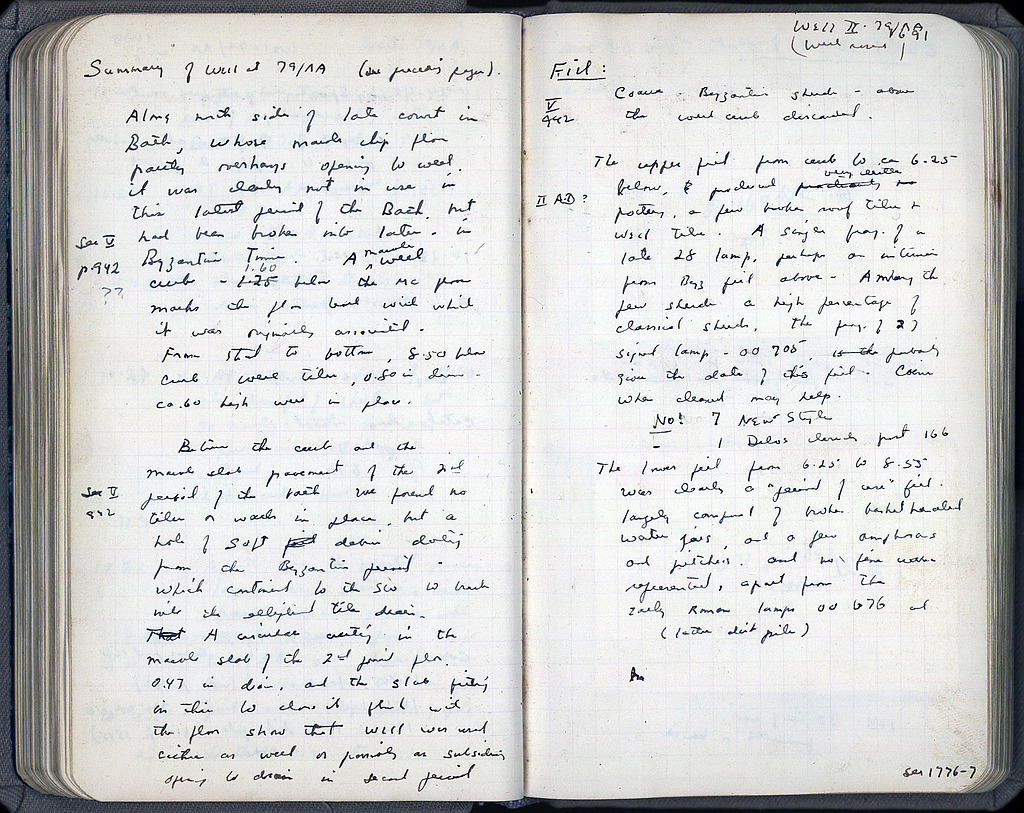 Summary of Well at 79/ΛΑ (see previous pages).
Along north side of late court in
Bath, whose marble chip floor
partly overhangs opening to well.
it was clearly not in use in
this latest period of the Bath, but
had been broken into later - in
see V
p942
??
Byzantine Times. A marble well
curb - 1.25 1.60 below the mc floor
marks the floor level with which
it was originally associated.
From start to bottom, 8.50 below
curb, were tiles, 0.80 in diam.
ca .60 high were in place.
Between the curb and the
marble slab pavement of the 2nd
see V
942
period of the bath we found no
tiles or walls in place, but a
hole of soft debris dating
from the Byzantine period -
which continued to the SW to break
into the elliptical tile drain.
That A circular cutting in the
marble slab of the 2nd period floor.
0.47 in diam, and the slab fitting
in this to close it flush with
the floor show that well was used
either as well or possibly as subsidiary
opening to drain in second period
Well II - 79/ΛΑ
691
Fill:
V
942
Coarse - Byzantine sherds - above
the well curb discarded.
The upper fill from curb to ca 6.25
below, produced practically no very little
II A.D?
pottery, a few broken roof tiles +
well tiles. A single frag. of a
late 28 lamp, perhaps an intrusion
from Byz fill above - Among the
few sherds a high percentage of
classical sherds, the frag. of 27
signed lamp - 00 705, is the probably
gives the date of this fill - Coins
when cleaned may help.
No! 7 New Style
- 1 Delos cleruch post 166
The lower fill from 6.25 to 8.55
was clearly a "period of use" fill.
largely composed of broken basket handled
water jars, and a few amphoras
and pitchers. and no fine ware
represented, apart from the
Early Roman lamps 00 676 at
(later dist pile)
see 1776-7